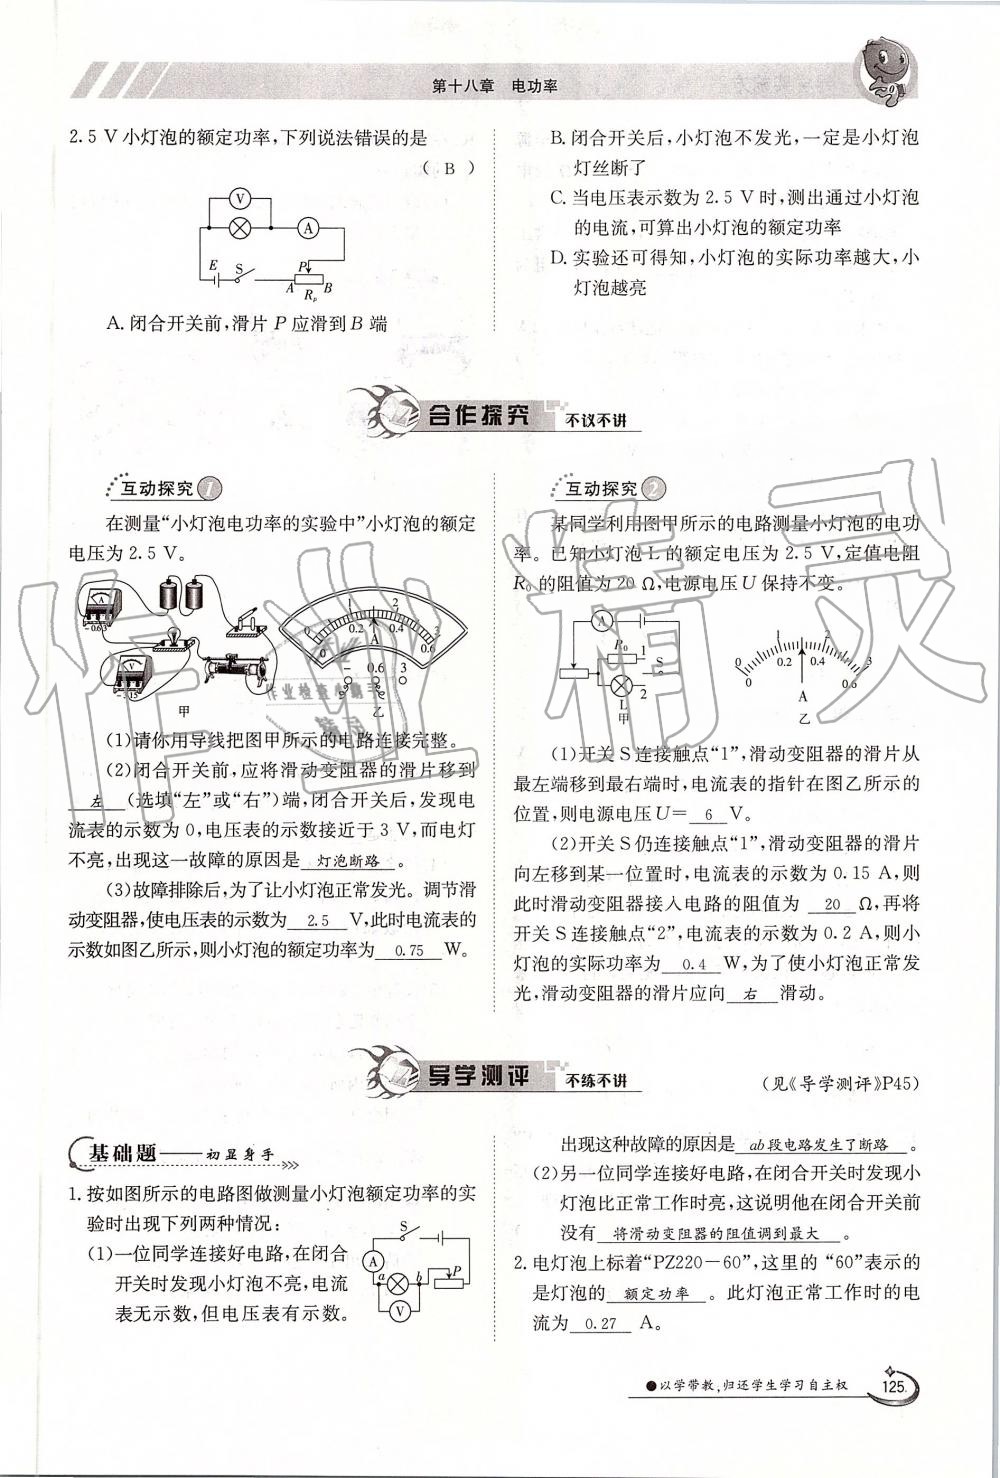 第十八章 电功率
2.5 V 小灯泡的额定功率,下列说法错误的是
( B )
V
A
E
S
P
A
B
Rp
A. 闭合开关前,滑片 P 应滑到 B 端
B. 闭合开关后,小灯泡不发光,一定是小灯泡
灯丝断了
C. 当电压表示数为 2.5 V 时,测出通过小灯泡
的电流,可算出小灯泡的额定功率
D. 实验还可得知,小灯泡的实际功率越大,小
灯泡越亮
合作探究 不议不讲
互动探究 1
在测量“小灯泡电功率的实验中”小灯泡的额定
电压为 2.5 V。
甲
0 1 2 3
0 0.2 0.4 0.6
A
− 0.6 3
乙
(1)请你用导线把图甲所示的电路连接完整。
(2)闭合开关前,应将滑动变阻器的滑片移到
左 (选填“左”或“右”)端,闭合开关后,发现电
流表的示数为 0,电压表的示数接近于 3 V,而电灯
不亮,出现这一故障的原因是 灯泡断路 。
(3)故障排除后,为了让小灯泡正常发光。调节滑
动变阻器,使电压表的示数为 2.5 V,此时电流表的
示数如图乙所示,则小灯泡的额定功率为 0.75 W。
互动探究 2
某同学利用图甲所示的电路测量小灯泡的电功
率。已知小灯泡 L 的额定电压为 2.5 V,定值电阻
R0 的阻值为 20 Ω,电源电压 U 保持不变。
A
R0
1
S
2
L
甲
0 1 2 3
0 0.2 0.4 0.6
A
乙
(1)开关 S 连接触点“1”,滑动变阻器的滑片从
最左端移到最右端时,电流表的指针在图乙所示的
位置,则电源电压 U= 6 V。
(2)开关 S 仍连接触点“1”,滑动变阻器的滑片
向左移到某一位置时,电流表的示数为 0.15 A,则
此时滑动变阻器接入电路的阻值为 20 Ω,再将
开关 S 连接触点“2”,电流表的示数为 0.2 A,则小
灯泡的实际功率为 0.4 W,为了使小灯泡正常发
光,滑动变阻器的滑片应向 右 滑动。
导学测评 不练不讲
(见《导学测评》P45)
基础题——初显身手
1. 按如图所示的电路图做测量小灯泡额定功率的实
验时出现下列两种情况:
(1)一位同学连接好电路,在闭合
开关时发现小灯泡不亮,电流
表无示数,但电压表有示数。
S
A
a
b
P
V
出现这种故障的原因是 ab段电路发生了断路 。
(2)另一位同学连接好电路,在闭合开关时发现小
灯泡比正常工作时亮,这说明他在闭合开关前
没有 将滑动变阻器的阻值调到最大 。
2. 电灯泡上标着“PZ220−60”,这里的 “60”表示的
是灯泡的 额定功率 。此灯泡正常工作时的电
流为 0.27 A。
●以学带教,归还学生学习自主权
125.
作业精灵